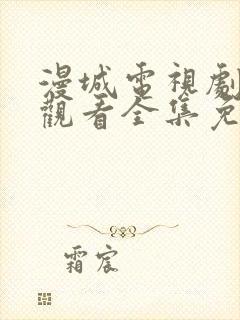 漫城電視劇
觀看全集免
霜宸